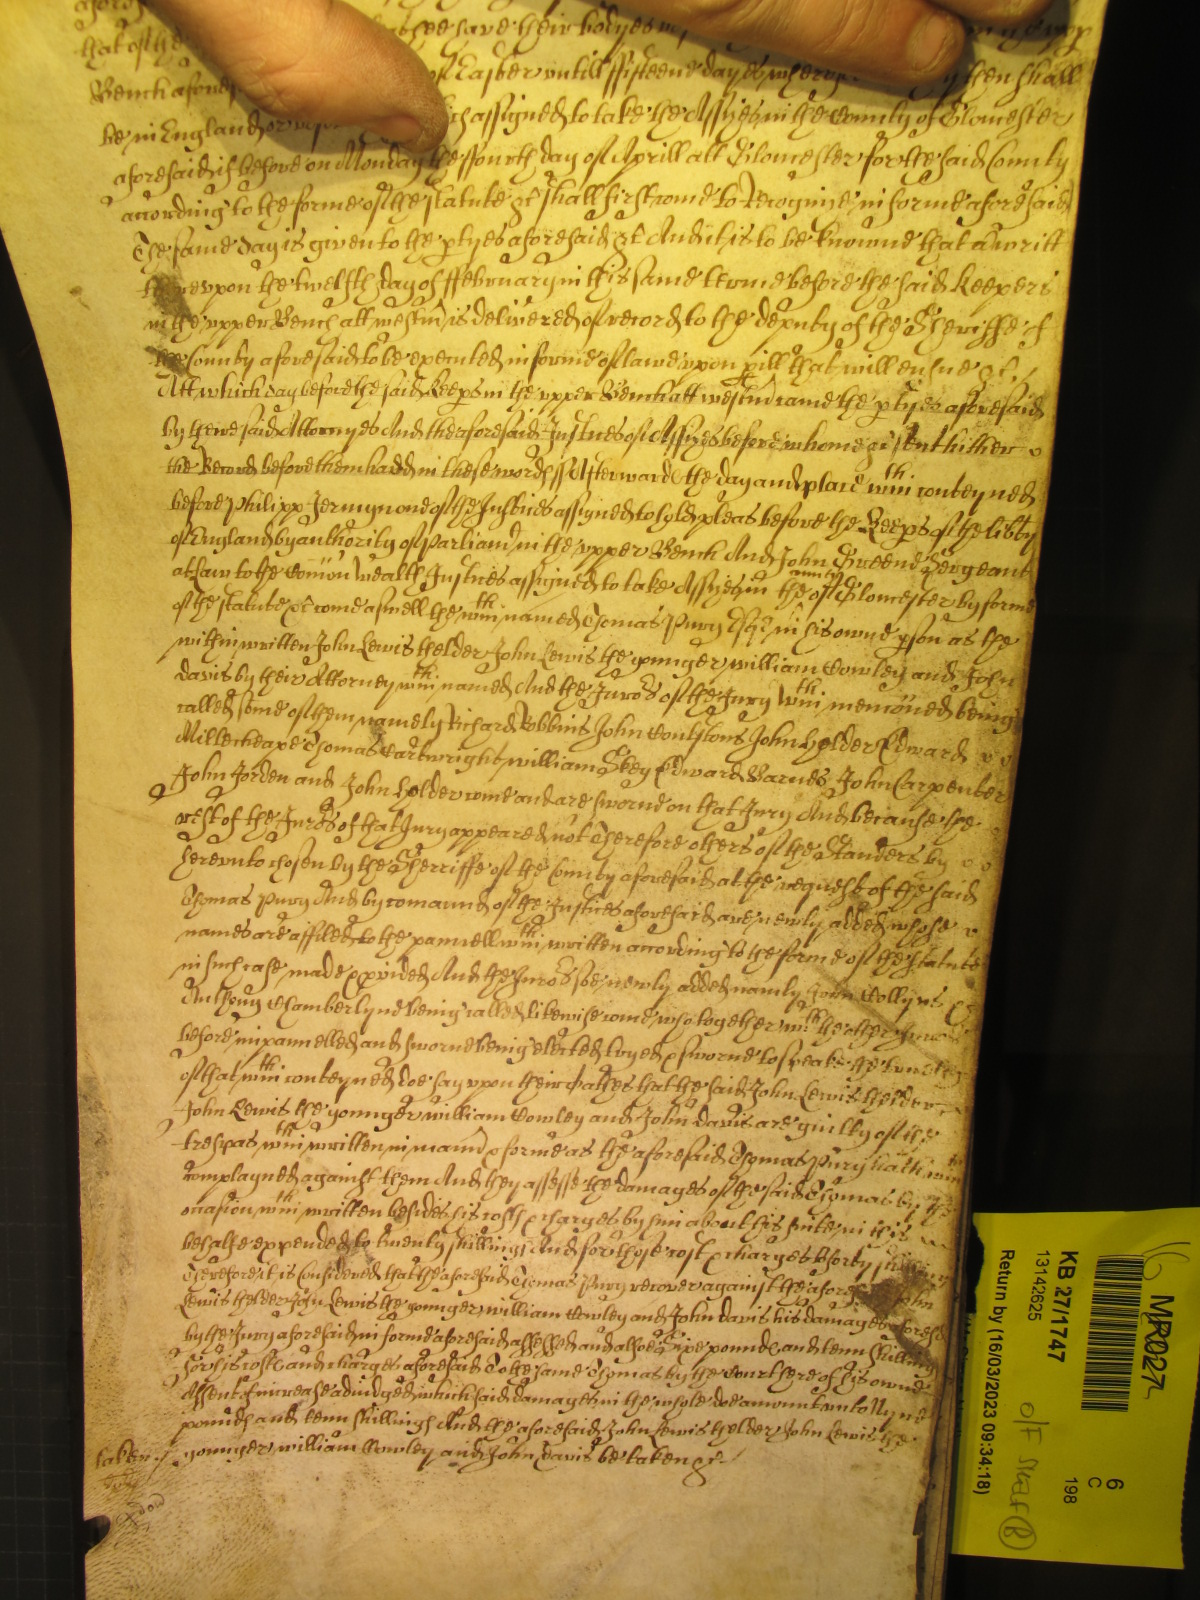 shee have their bodyes
that of the of Easter untill fifteene dayes then shall
Bench afores assigned to take the Assizes in the County of Gloucester
be in England or
aforesaid if before on Monday the fourth day of Aprill att Gloucester for the said County
according to the forme of the statute &c shall first come to Recognize in forme aforesaid
The same day is given to the ptyes aforesaid &c And it is to be knowne that a writt
upon the twelfth day of ffebruary in this same terme before the said Keepers
in the upper Bench att Westm is delivered of record to the deputy of the Sheriffe of
the County aforesaid to be executed in forme of lawe upon pill that will ensue &c
Att which day before the said Keeps in the upper Bench att Westm came the ptyes aforesaid
by there said Attornyes And the aforesaid Justices of Assizes before whome &c sent hither
the Record before them hadd in these words ss Afterward the day and place wthin conteyned
before Philipp Jermyn one of the Justices assigned to hold pleas before the Keeps of the libty
of England by authority of Parliamt in the upper Bench And John Greene Sergeant
at law to the Comon Wealth Justices assigned to take Assizes in the County of Gloucester by forme
of the statute &c come aswell the wthin named Thomas Pury Esqr in his owne pson as the
within written John Lewis thelder John Lewis the younger William Cowley and John
Davis by their Attorney wthin named And the Juro's of the Jury wthin menconed being
called some of them namely Richard Robbins John Holder Edward
Millecheape Thomas Cartwright William Skey Edward Barnes John Carpenter
John Jorden and John Holder come and are sworne on that Jury And because the
rest of the Juro's of that Jury appeared not Therefore others of the Standers by
hereunto chosen by the Sherriffe of the County aforesaid at the request of the said
Thomas Pury And by comaund of the Justices aforesaid are newly added whose
names are affiled to the pannell wthin written according to the forme of the statute
in such case made & pvided And the Juro's soe newly added namly John Collyns &
Anthony Chamberlyne being called likewise come who together wth the other Juro's
before impannelled and sworne being elected tryed & sworne to speake the trueth
of that wthin conteyned doe say upon their Oathes that the said John Lewis thelder
John Lewis the younger William Cowley and John Davis are guilty of the
trespas wthin written in mann & forme as the aforesaid Thomas Pury hath
complayned against them And they assesse the damages of the said Thomas by the
occasion wthin written besides his costs & charges by him about his suite in this
behalfe expended to twenty shillings And for those costs & charges thirty shillings
Therefore it is Considered that the aforesaid Thomas Pury recover against the afores John
Lewis thelder John Lewis the younger William Cowley and John Davis his damages aforesd
by the Jury aforesaid in forme aforesaid assessed and alsoe Sixe pounds and tenn shillings
for his costs and charges aforesaid To the same Thomas by the Court here of his owne
Assent of increase adiudged which said damages in the whole doe amount unto Nyne
pounds and tenn shillings And the aforesaid John Lewis thelder John Lewis the
taken younger William Cowley and John Davis be taken &c
MR027
16
KB 27/1747
13142625
Return by (16/03/2023 09:34:18)
6
C
198
o/F